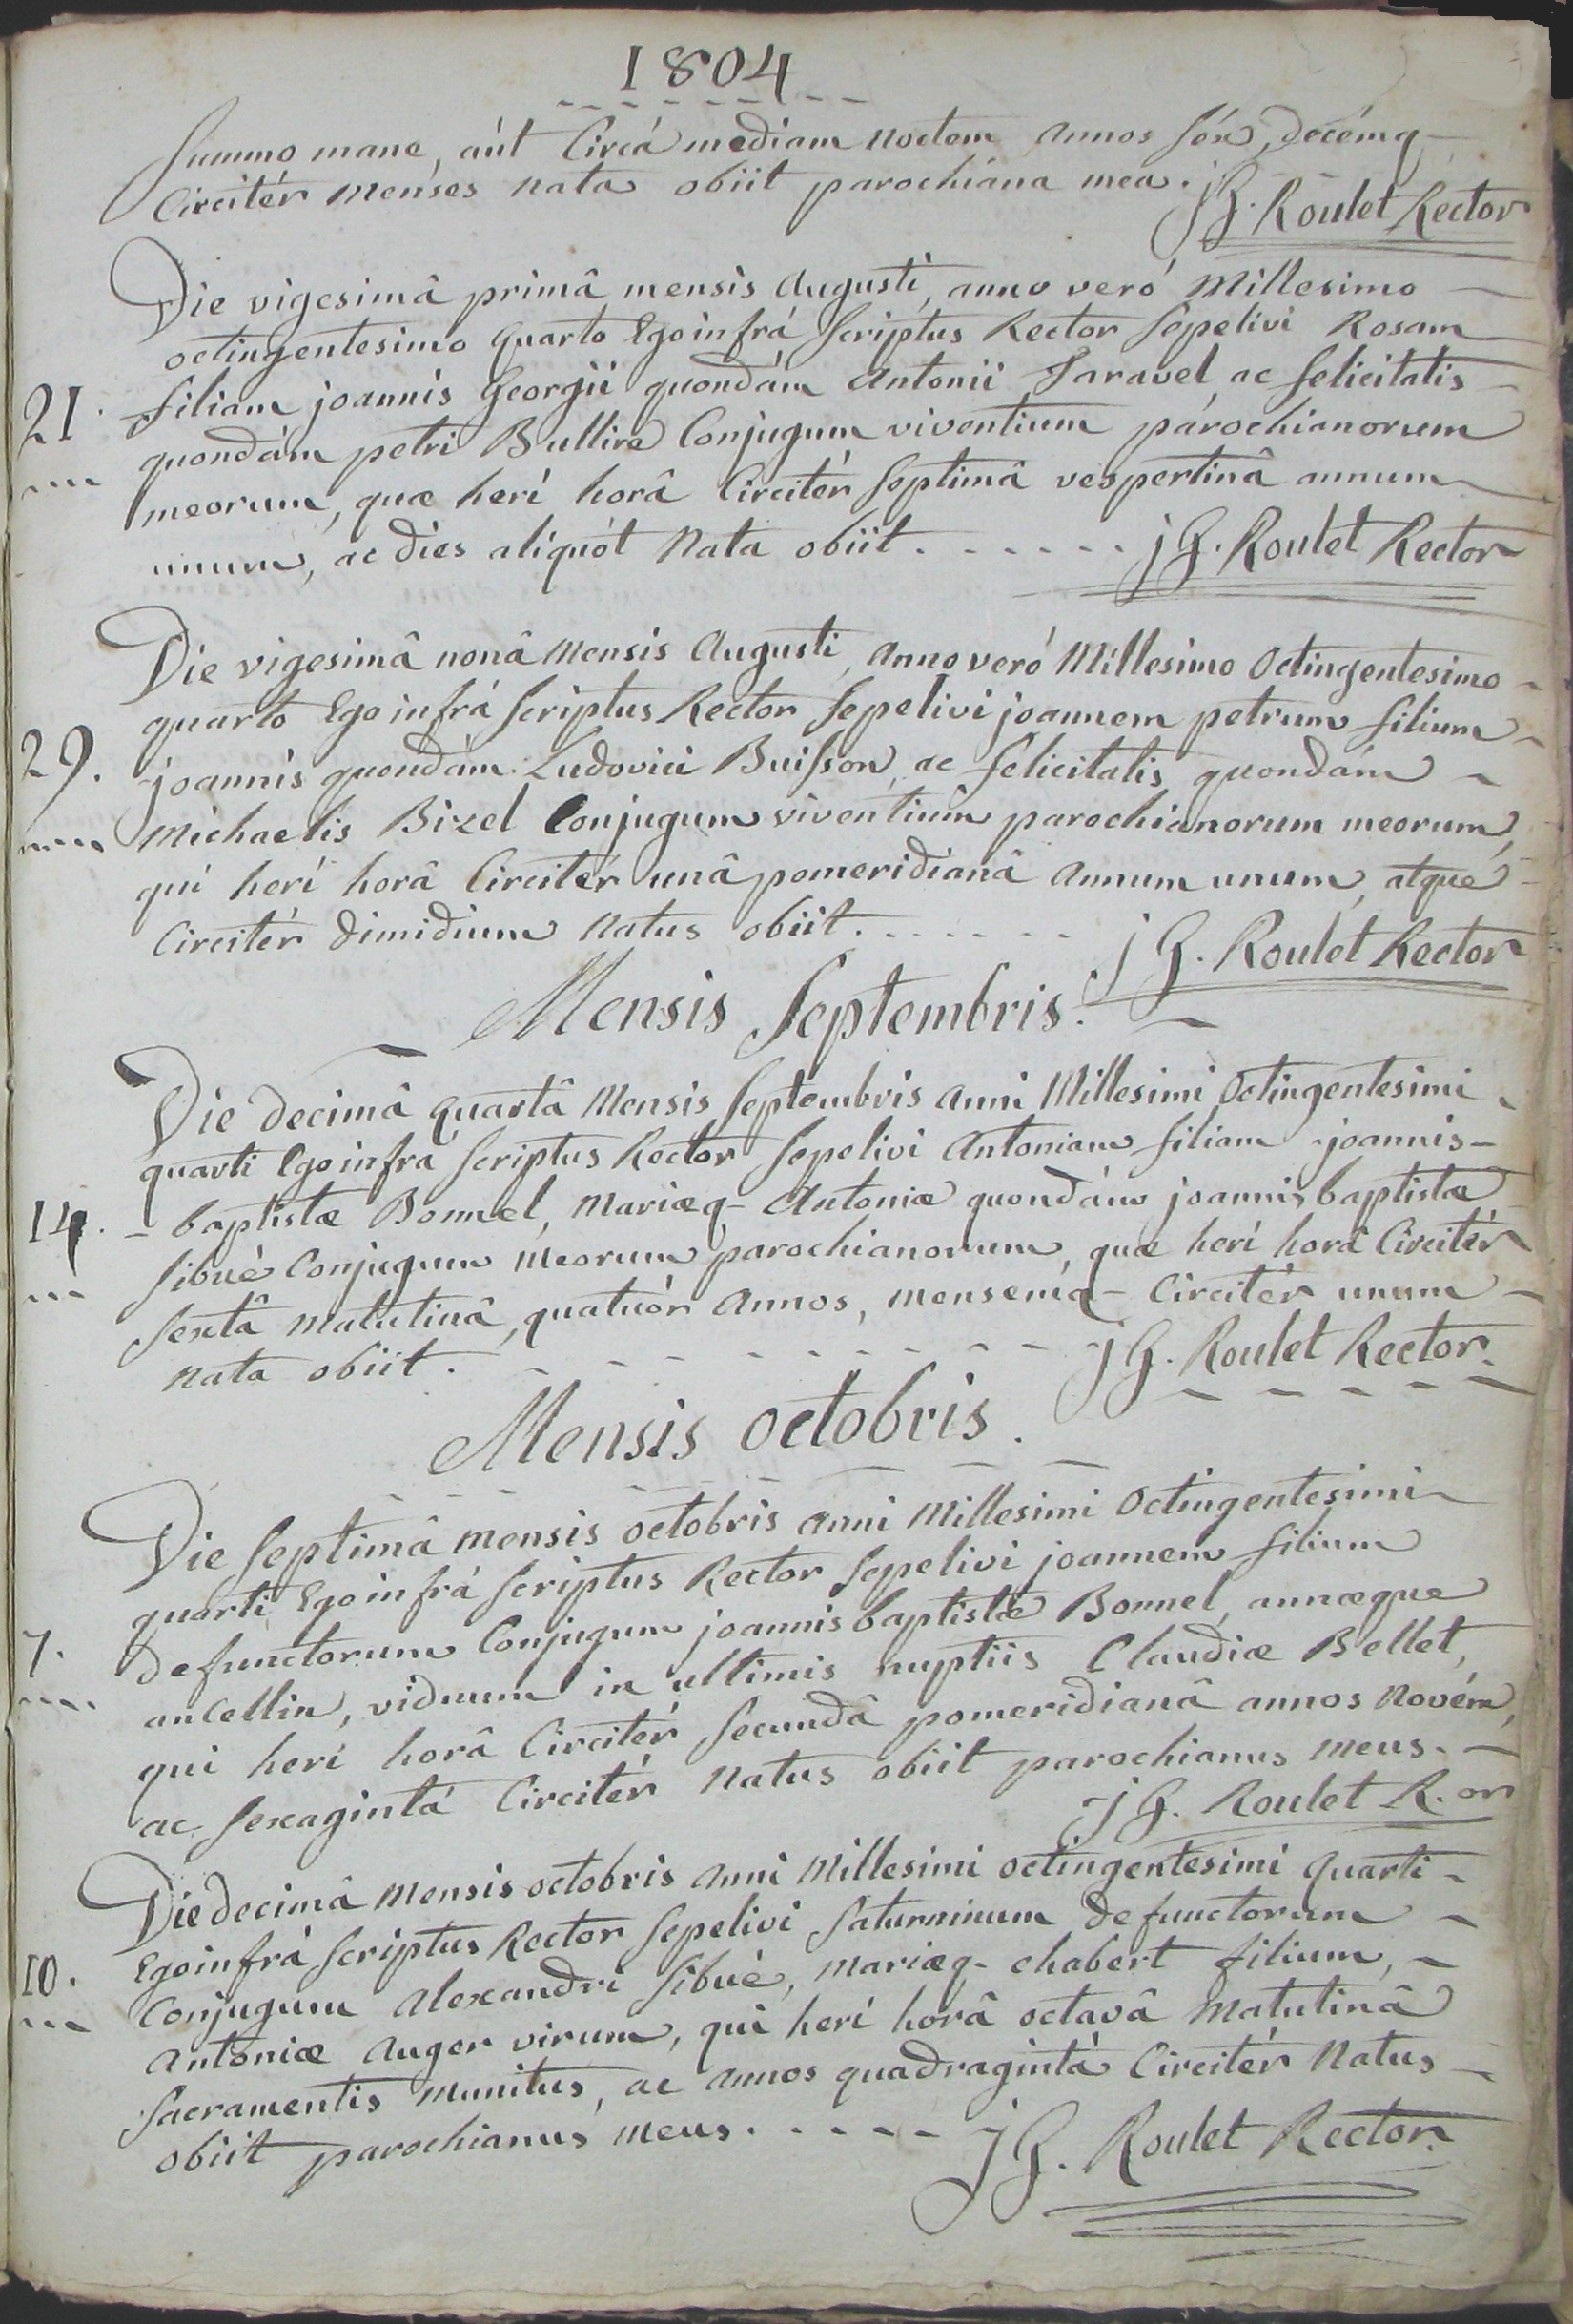 1804
Summo mane, aút Circá mediam noctem annos séx, decémq-
Circitér menses nata obiit parochiána mea.
J G. Roulet Rector
Die vigesimâ primâ mensis Augusti, anno veró Millesimo
octingentesimo quarto Ego infrá Scriptus Rector Sepelivi Rosam
21. filiam joannis Georgii quondám Antonii Taravel, ac felicitatis
quondám petri Bullire Conjugum viventium parochianorum
meorum, quæ herí horâ Circitér Septimâ vespertinâ annum
unum, ac dies aliquót Nata obiit. - - - - - - j G. Roulet Rector
Die vigesimâ nonâ Mensis Augusti, Anno veró Millesimo Octingentesimo
quarto Ego infrá Scriptus Rector Sepelivi joannem petrum filium
29. joannis quondám Ludovici Buisson, ac felicitatis quondám
Michaelis Bizel Conjugum viventium parochianorum meorum,
qui herí horâ Circitér unâ pomeridianâ Annum unum, atqué
Circitér dimidium Natus obiit. - - - - - - j G. Roulet Rector
Mensis Septembris.
Die decimâ quartâ Mensis Septembris anni Millesimi Octingentesimi
quarti Ego infra Scriptus Rector Sepelivi Antoniam filiam joannis-
14. - baptistæ Bonnel, Mariæq- Antoniæ quondám joannis baptistæ
Sibué Conjugum Meorum parochianorum, quæ herí horâ Circitér
Sextâ Matutinâ, quatuór Annos, mensemq- Circitér unum
nata obiit. - - - - - - - - - j G. Roulet Rector.
Mensis octobris.
Die Septimâ mensis octobris anni Millesimi Octingentesimi
quarti Ego infrá Scriptus Rector Sepelivi joannem filium
7. defunctorum Conjugum joannis baptistæ Bonnel, annæque
anCellin, viduum in ultimis nuptiis Claudiæ Bellet,
qui herí horâ Circitér Secundâ pomeridianâ annos Novém,
ac Sexagintá Circitér Natus obiit parochianus meus.
j G. Roulet R.or
Die decimâ Mensis octobris Anni Millesimi octingentesimi quarti
Ego infrá Scriptus Rector Sepelivi Saturninum defunctorum
10. Conjugum Alexandri Sibué, Mariæq- chabert filium,
Antoniæ Auger virum, qui herí horâ octavâ Matutinâ
Sacramentis Munitus, ac annos quadragintá Circitér Natus
obiit parochianus meus. - - - - - j G. Roulet Rector.